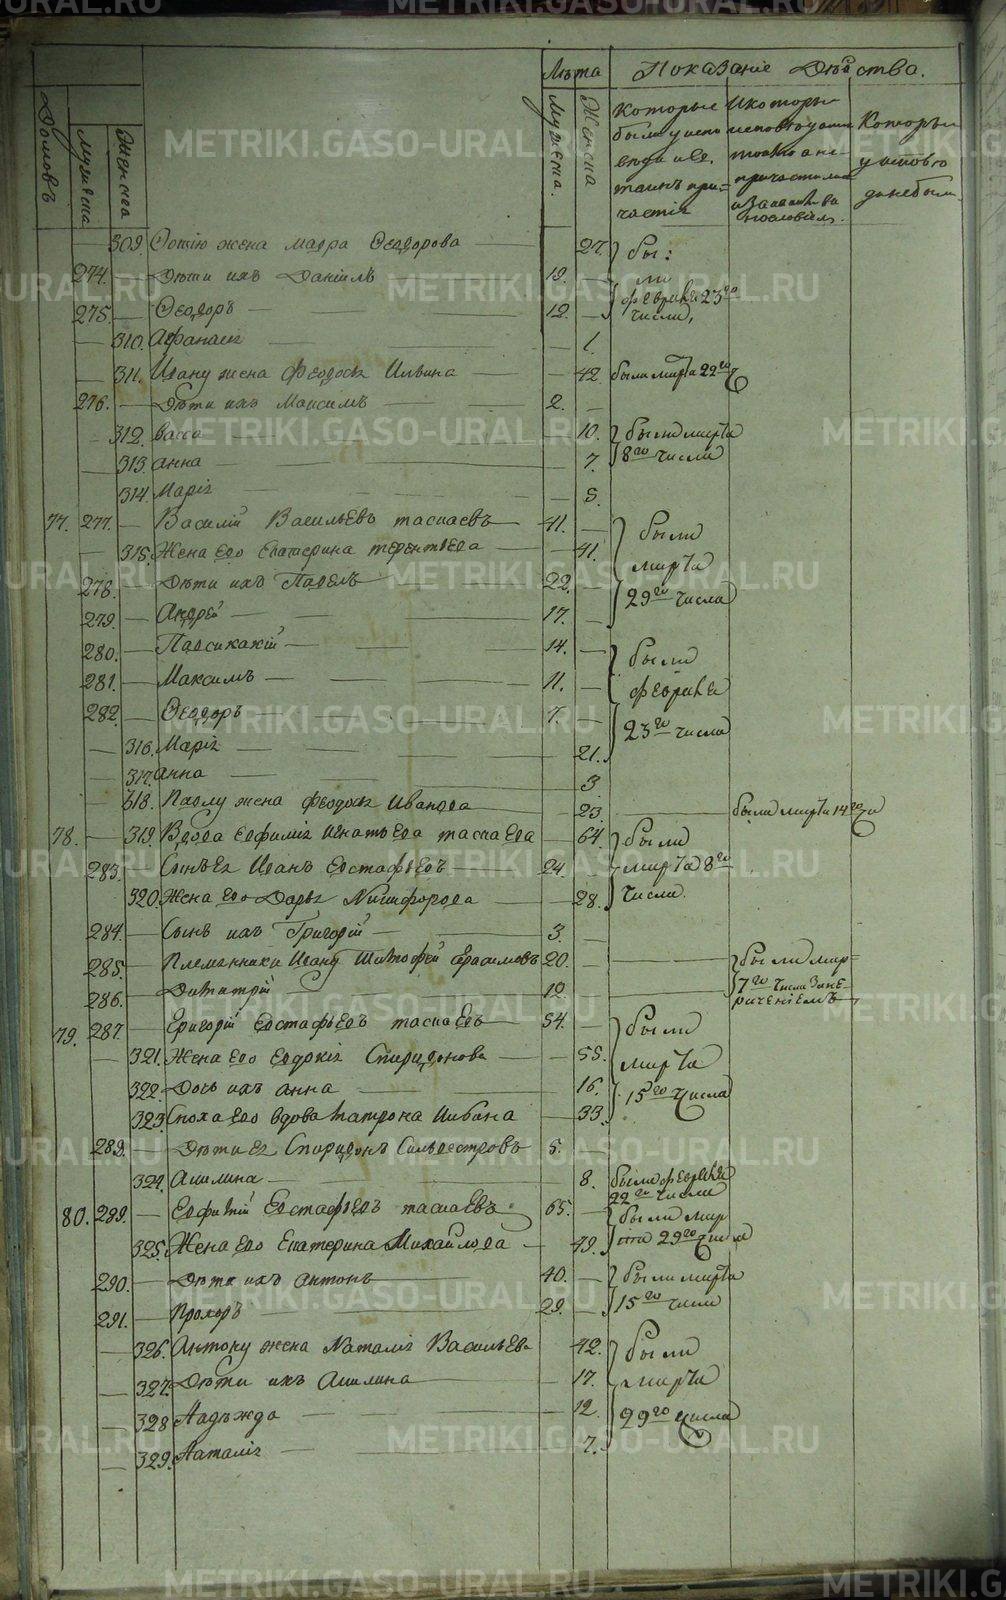 Лѣта Показанiе Дѣйства.
Домовъ
мужеска
Женска
Мужеска.
Женска
Которые были у исповѣди и Св. таинъ причастiя
И которые исповѣдались токмо а не причастились
Которые у исповѣди не были
309. жена Мавра Ѳеодорова 27. были
274. Дѣти ихъ Данiилъ 19. февраля 23го
275. Ѳеодоръ 12. числа,
310. 1.
311. Ивану жена Феодосiя Ильина 42. были марта 22го
276. Дѣти ихъ Максимъ 2.
312. Васса 10. были марта
313. Анна 7. 8го числа
314. Марiя 5.
77. 277. Василiй Васильевъ 41. были
315. Жена его Екатерина Терентьева 41. марта
278. Дѣти ихъ Павелъ 22. 29го числа
279. Андрей 17.
280. 14. были
281. Максимъ 11. февраля
282. Ѳеодоръ 7. 23го числа
316. Марiя 21.
317. Анна 3.
318. Павлу жена Феодосiя Иванова 23. были марта 14го
78. 319. Вдова Евфимiя Игнатьева 64. были
283. Сынъ Ея Иванъ Евстафьевъ 24. марта 8го
320. Жена его Дарья Никифорова 28. числа.
284. Сынъ ихъ Григорiй 3.
285. Племянники Ивану 20. были мар-
286. Димитрiй 12. 7го числа
79. 287. Григорiй Евстафьевъ 54. были
321. Жена его Евдокiя Спиридонова 55. марта
322. Дочь ихъ Анна 16. 15го числа
323. Сноха его вдова 33.
289. Дѣти Ея Спиридонъ Сильвестровъ 5.
324. Акилина 8. были февраля 22го числа
80. 289. Евфимiй Евстафьевъ 65. были мар
325. Жена его Екатерина Михайлова 49. та 29го числа
290. Дѣти ихъ Антонъ 40. были марта
291. Прохоръ 29. 15го числа
326. Антону жена Наталiя Васильева 42. были
327. Дѣти ихъ Акилина 17. марта
328 Надѣжда 12. 29го числа
329. Наталiя 7.
METRIKI.GASO-URAL.RU